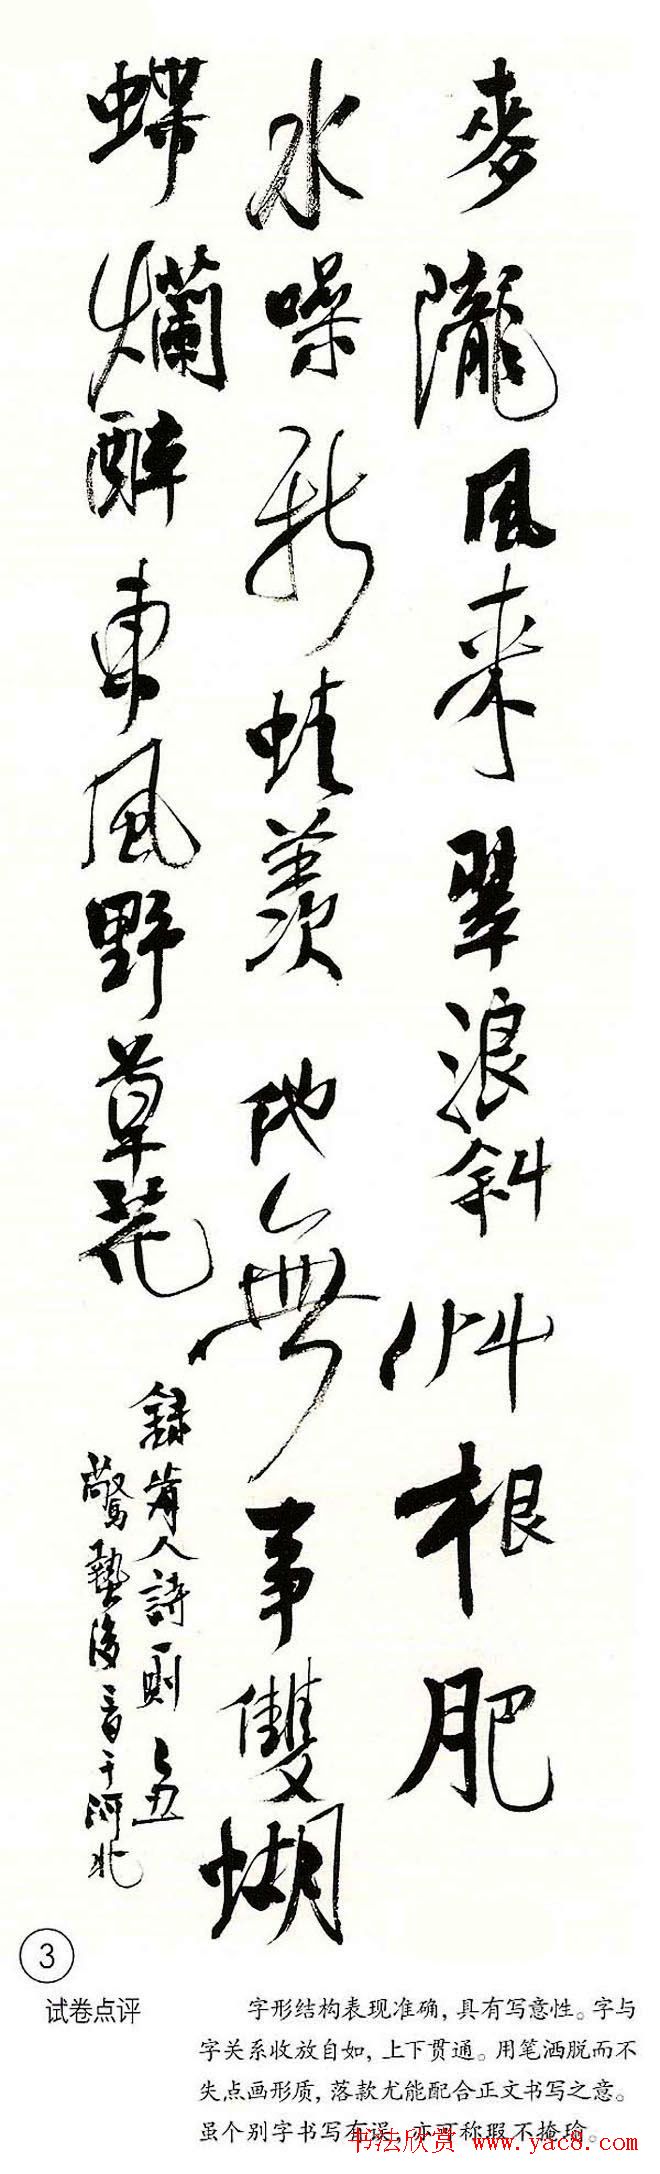 麥隴風來翠浪斜艸根肥
水噪新蛙羨他無事雙蝴
蝶爛醉東風野草花
錄前人詩一則 乙丑
驚蟄後一日于河北
3
试卷点评
字形结构表现准确,具有写意性。字与
字关系收放自如,上下贯通。用笔洒脱而不
失点画形质,落款尤能配合正文书写之意。
虽个别字书写有误,亦可称瑕不掩瑜。
书法欣赏 www.yac8.com